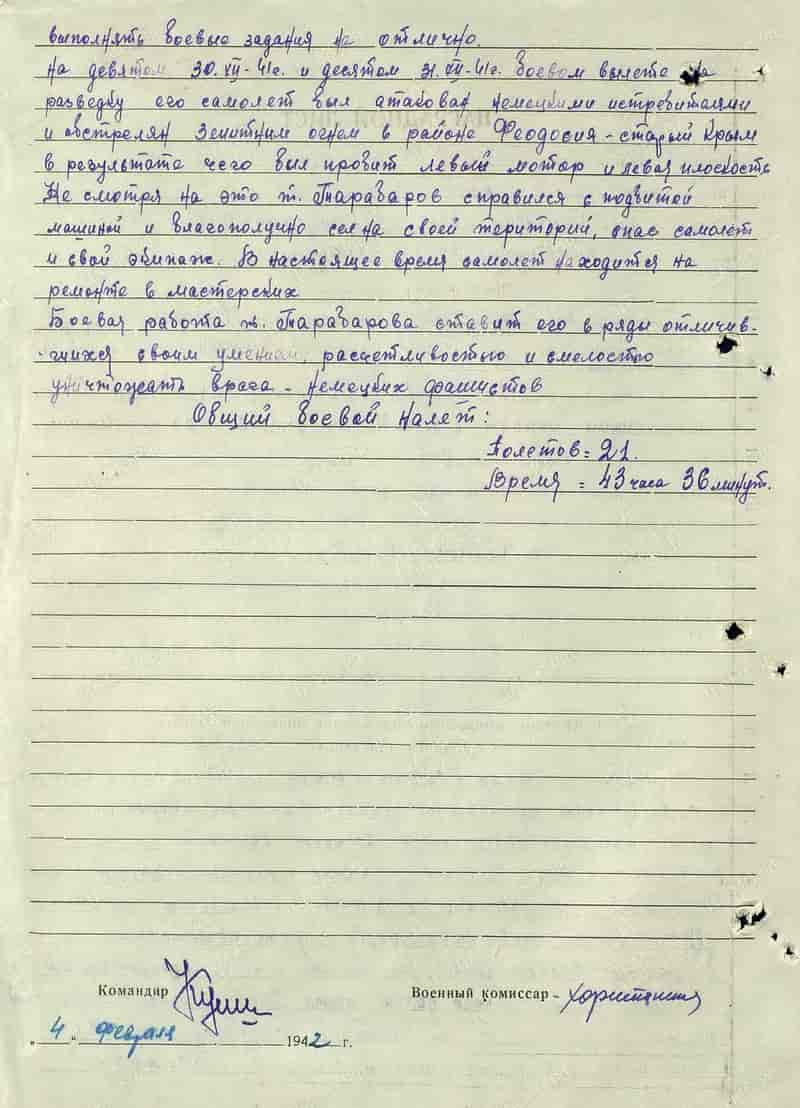 выполнять боевые задания на отлично.
на девятом 30.XII-41г. и десятом 31.XII-41г. боевом вылете на
разведку его самолет был атакован немецкими истребителями
и обстрелян зенитним огнем в районе Феодосия - старый Крым
в результате чего был пробит левый мотор и левая плоскость
Не смотря на это т. Тарабаров справился с подбитой
машиной и благополучно сел на своей територий, спас самолет
и свой экипаж. В настоящее время самолет находится на
ремонте в мастерских
Боевая работа т. Тарабарова ставит его в ряды отличив-
-шихся своим умением, расчетливостью и смелостью
уничтожать врага - немецких фашистов
Общий боевой налет:
Полетов = 21.
Время = 43 часа 36 минут.
Командир Военный комиссар -
„ 4 " февраля 1942 г.